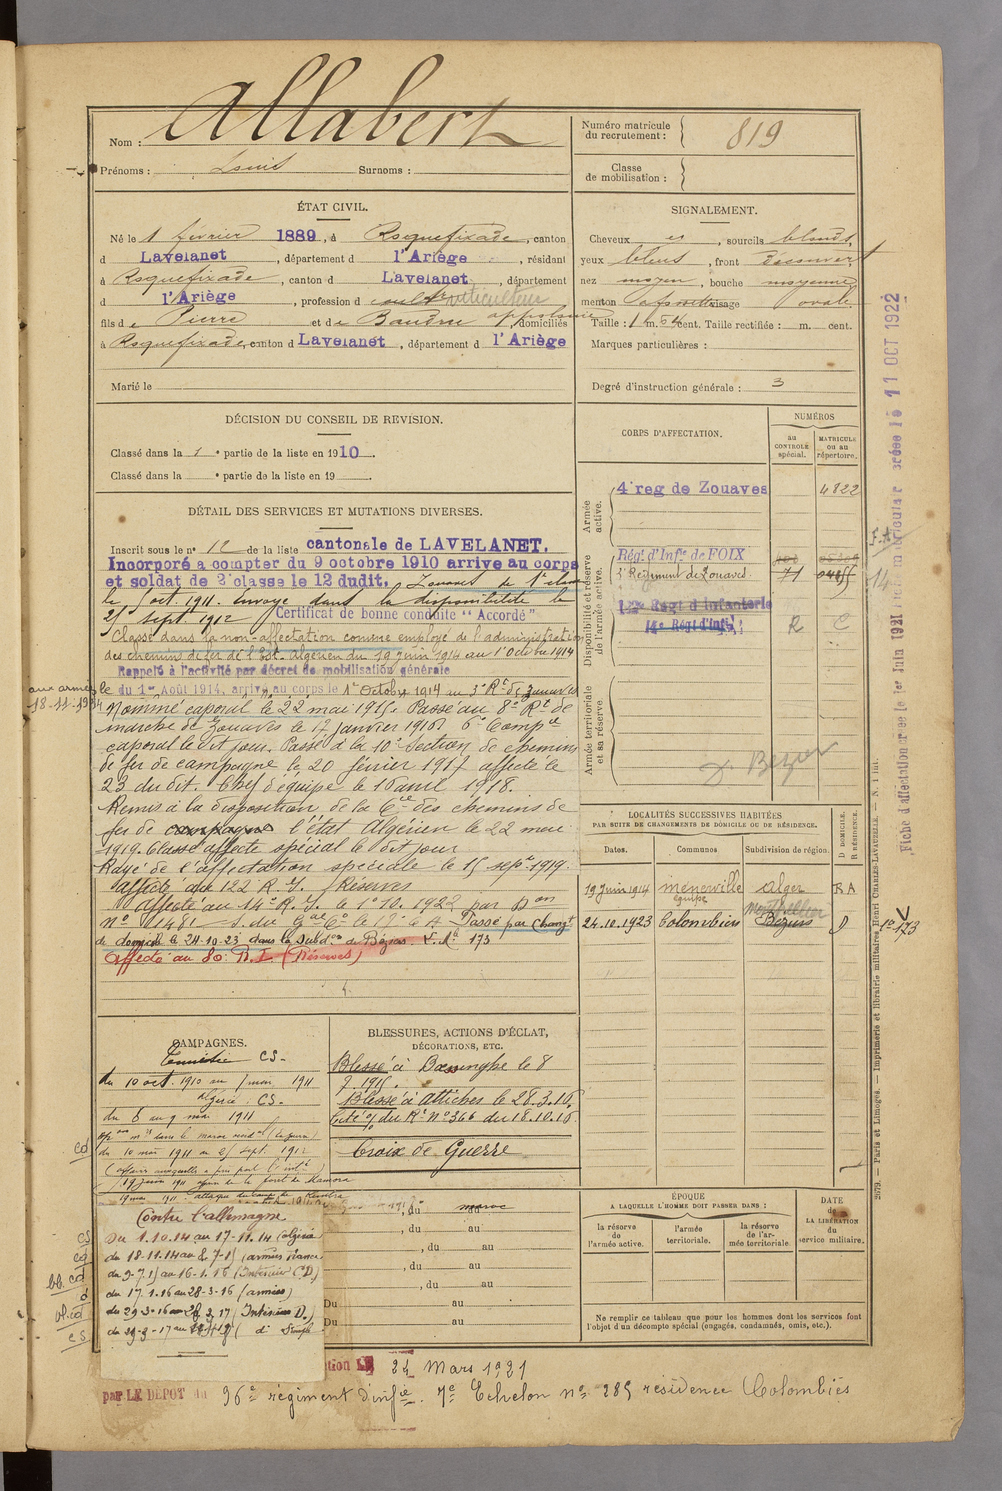 Nom : Allabert
Prénoms : Louis Surnoms :
Numéro matricule
du recrutement : 819
Classe
de mobilisation :
ÉTAT CIVIL.
Né le 1 février 1889, à Roquefixade, canton
d Lavelanet, département d l'Ariège, résidant
à Roquefixade, canton d Lavelanet, département
d l'Ariège, profession d viticulteur
fils de Pierre et de Baudru appolonie, domiciliés
à Roquefixade, canton d Lavelanet, département d l'Ariège
Marié le
SIGNALEMENT.
Cheveux et, sourcils blonds,
yeux bleus, front découvert
nez moyen, bouche moyenne
menton visage ovale
Taille : 1 m. 54 cent. Taille rectifiée : m. cent.
Marques particulières :
Degré d'instruction générale : 3
DÉCISION DU CONSEIL DE REVISION.
Classé dans la 1e partie de la liste en 1910.
Classé dans la e partie de la liste en 19 .
DÉTAIL DES SERVICES ET MUTATIONS DIVERSES.
Inscrit sous le n° 12 de la liste cantonale de LAVELANET.
Incorporé a compter du 9 octobre 1910 arrive au corps
et soldat de 2e classe le 12 dudit. Zouaves de 1e classe
le 1 oct. 1911. Envoyé dans la disponibilité le
25 sept. 1912 Certificat de bonne conduite "Accordé"
Classé dans la non-affectation comme employé de l'administration
des chemins de fer de l'Est-Algérien du 19 juin 1914 au 1 Octobre 1914
Rappelé à l'activité par décret de mobilisation générale
aux armées le
18-11-1914
du 1er Août 1914, arrivé au corps le 1er Octobre 1914 au 3e Rt de Zouaves
Nommé caporal le 22 mai 1915. Passé au 8e Rt de
marche de Zouaves le 17 janvier 1916 6e Compie
caporal le dit jour. Passé à la 10e Section de chemins
de fer de campagne le 20 février 1917 affecté le
23 du dit. Chef d'équipe le 16 avril 1918.
Remis à la disposition de la Cie des chemins de
fer de campagne l'état Algérien le 22 mai
1919. Classé affecté spécial le dit jour
Rayé de l'affectation spéciale le 15 septe 1919.
Affecté au 122 R.I. Réserves
Affecté au 14e R.I. le 1e 10. 1922 par Don
n° 1481 Passé par changt
de domicile le 24-10-23 dans la Subdon de Béziers 173
affecté au 80e R.I. (Réserves)
CORPS D'AFFECTATION.
NUMÉROS
au
CONTROLE
spécial.
MATRICULE
ou au
répertoire.
Armée
active.
4e reg de Zouaves 4822
Disponibilité et réserve
de l'armée active.
Régt d'Infie de FOIX
3e Régiment de Zouaves 71
122e Régt d'infanterie
14e Régt d'Infie R C
Armée territoriale
et sa réserve
D. Bezier
Fiche d'affectation créée le 1er Juin 1921
créée le 11 OCT 1922
LOCALITÉS SUCCESSIVES HABITÉES
PAR SUITE DE CHANGEMENTS DE DOMICILE OU DE RÉSIDENCE.
Dates. Communes Subdivision de région.
D DOMICILE.
R RÉSIDENCE.
19 juin 1914 Ménerville Alger RA
équipe Montpellier
24.10.1923 Colombiers Béziers D
173
CAMPAGNES.
Tunisie CS-
du 10 oct. 1910 au 7 mai 1911
Algérie : CS-
du 8 au 9 mai 1911
du 10 mai 1911 au 25 sept. 1912
19 juin 1911
19 mai 1911
Contre l'allemagne
Du 1.10.14 au 17-11.14 (algérie
du 18-11.14 au 8-7-15 (armées France
du 9-7.15 au 16-1.16 (Intérieur CD.)
du 17.1.16 au 28-3-16 (armées)
du 29-3-16 (Intérieur D.)
BLESSURES, ACTIONS D'ÉCLAT,
DÉCORATIONS, ETC.
Blessé à Bœsinghe le 8
7. 1915.
Blessé à Attiches le 28.3.16
Cité o/ du Rt N° 366 du 18.10.16
Croix de Guerre
, du au maroc
, du au
, du au
, du au
, du au
Du au
Du au
ÉPOQUE
A LAQUELLE L'HOMME DOIT PASSER DANS :
la réserve
de
l'armée active.
l'armée
territoriale.
la réserve
de l'ar-
mée territoriale.
DATE
de
LA LIBÉRATION
du
service militaire.
Ne remplir ce tableau que pour les hommes dont les services font
l'objet d'un décompte spécial (engagés, condamnés, omis, etc.).
2079. — Paris et Limoges. — Imprimerie et librairie militaires Henri CHARLES-LAVAUZELLE. — N. 1 bis.
24 Mars 1921
par LE DÉPOT du 96e régiment d'infie. 7e Echelon n° 285 résidence Colombiès